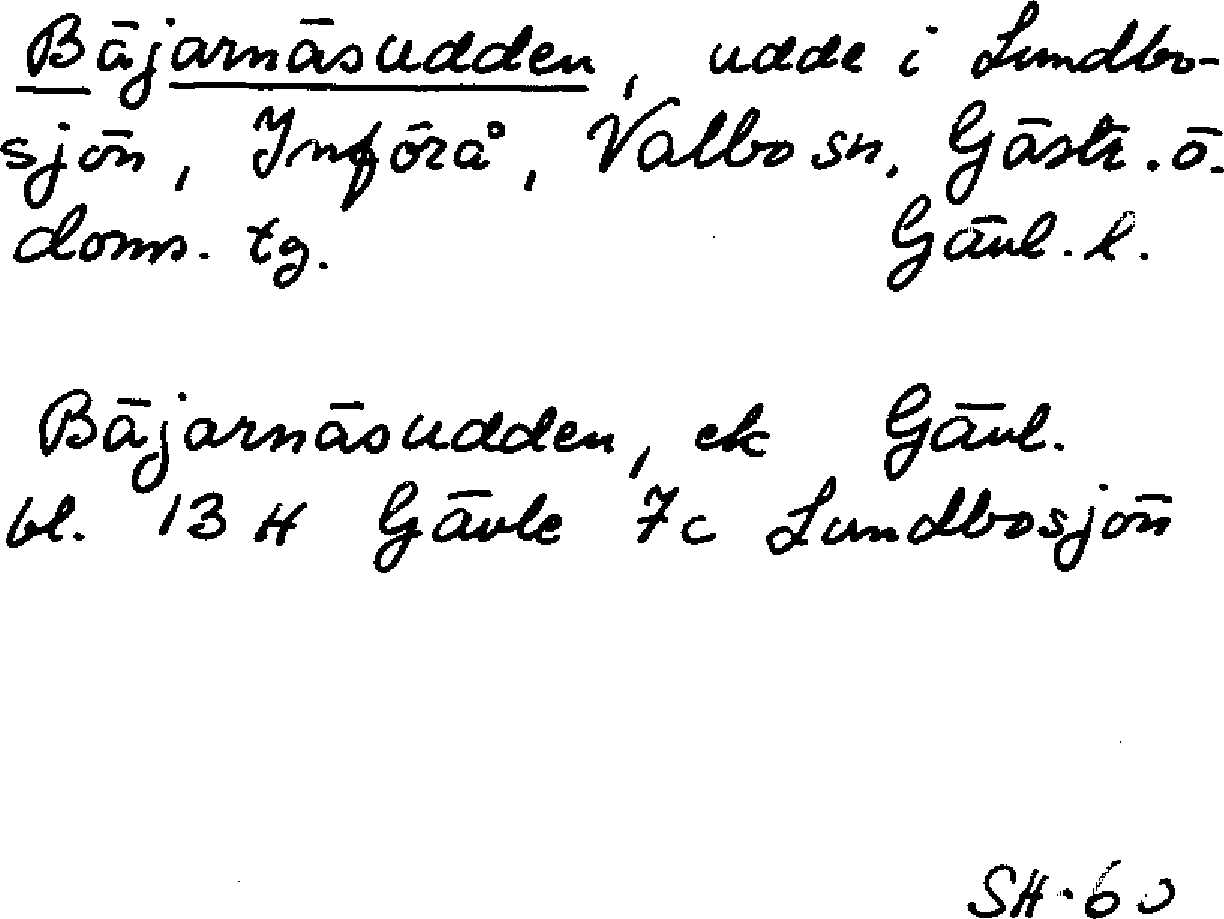 Bäjarnäsudden, udde i Lundbo-
sjön, Införå, Valbo sn. Gästr. ö.
doms. tg. Gävl. l.
Bäjarnäsudden, ek Gävl.
bl. 13 H Gävle 7c Lundbosjön
SH. 60